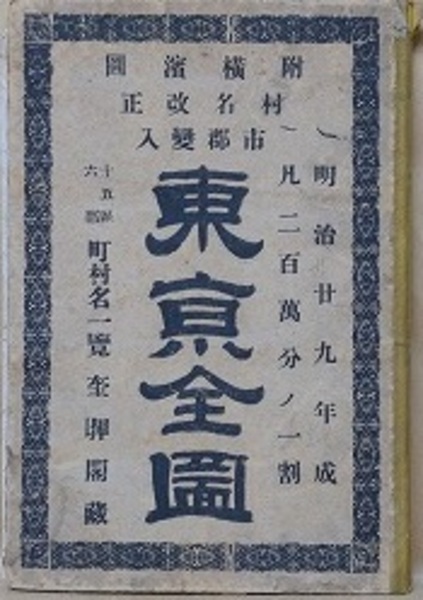 附橫濱圖
村名改正
市郡變入
明治廿九年成
凡二百萬分ノ一割
東亰全圖
十五區
六郡
町村名一覽